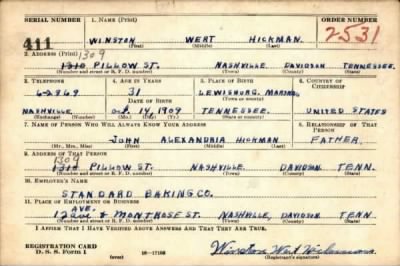 SERIAL NUMBER 1. NAME (Print) ORDER NUMBER
411 WINSTON WERT HICKMAN 2531
(First) (Middle) (Last)
2. ADDRESS (Print) 1309
1310 PILLOW ST. NASHVILLE DAVIDSON TENNESSEE.
(Number and street or R. F. D. number) (Town) (County) (State)
3. TELEPHONE 4. AGE IN YEARS 5. PLACE OF BIRTH 6. COUNTRY OF CITIZENSHIP
6-2969 31 LEWISBURG,
DATE OF BIRTH (Town or county)
NASHVILLE 14, 1909 TENNESSEE. UNITED STATES
(Exchange) (Number) (Mo.) (Day) (Yr.) (State or country)
7. NAME OF PERSON WHO WILL ALWAYS KNOW YOUR ADDRESS 8. RELATIONSHIP OF THAT PERSON
JOHN ALEXANDRIA HICKMAN FATHER.
(Mr., Mrs., Miss) (First) (Middle) (Last)
9. ADDRESS OF THAT PERSON
1309
1310 PILLOW ST. NASHVILLE. DAVIDSON TENN.
(Number and street or R. F. D. number) (Town) (County) (State)
10. EMPLOYER'S NAME
STANDARD BAKING CO.
11. PLACE OF EMPLOYMENT OR BUSINESS
AVE.
12 & MONTROSE ST. NASHVILLE, DAVIDSON TENN.
(Number and street or R. F. D. number) (Town) (County) (State)
I AFFIRM THAT I HAVE VERIFIED ABOVE ANSWERS AND THAT THEY ARE TRUE.
REGISTRATION CARD
D. S. S. Form 1 (over) 16—17105 Winston Wert Hickman
(Registrant's signature)